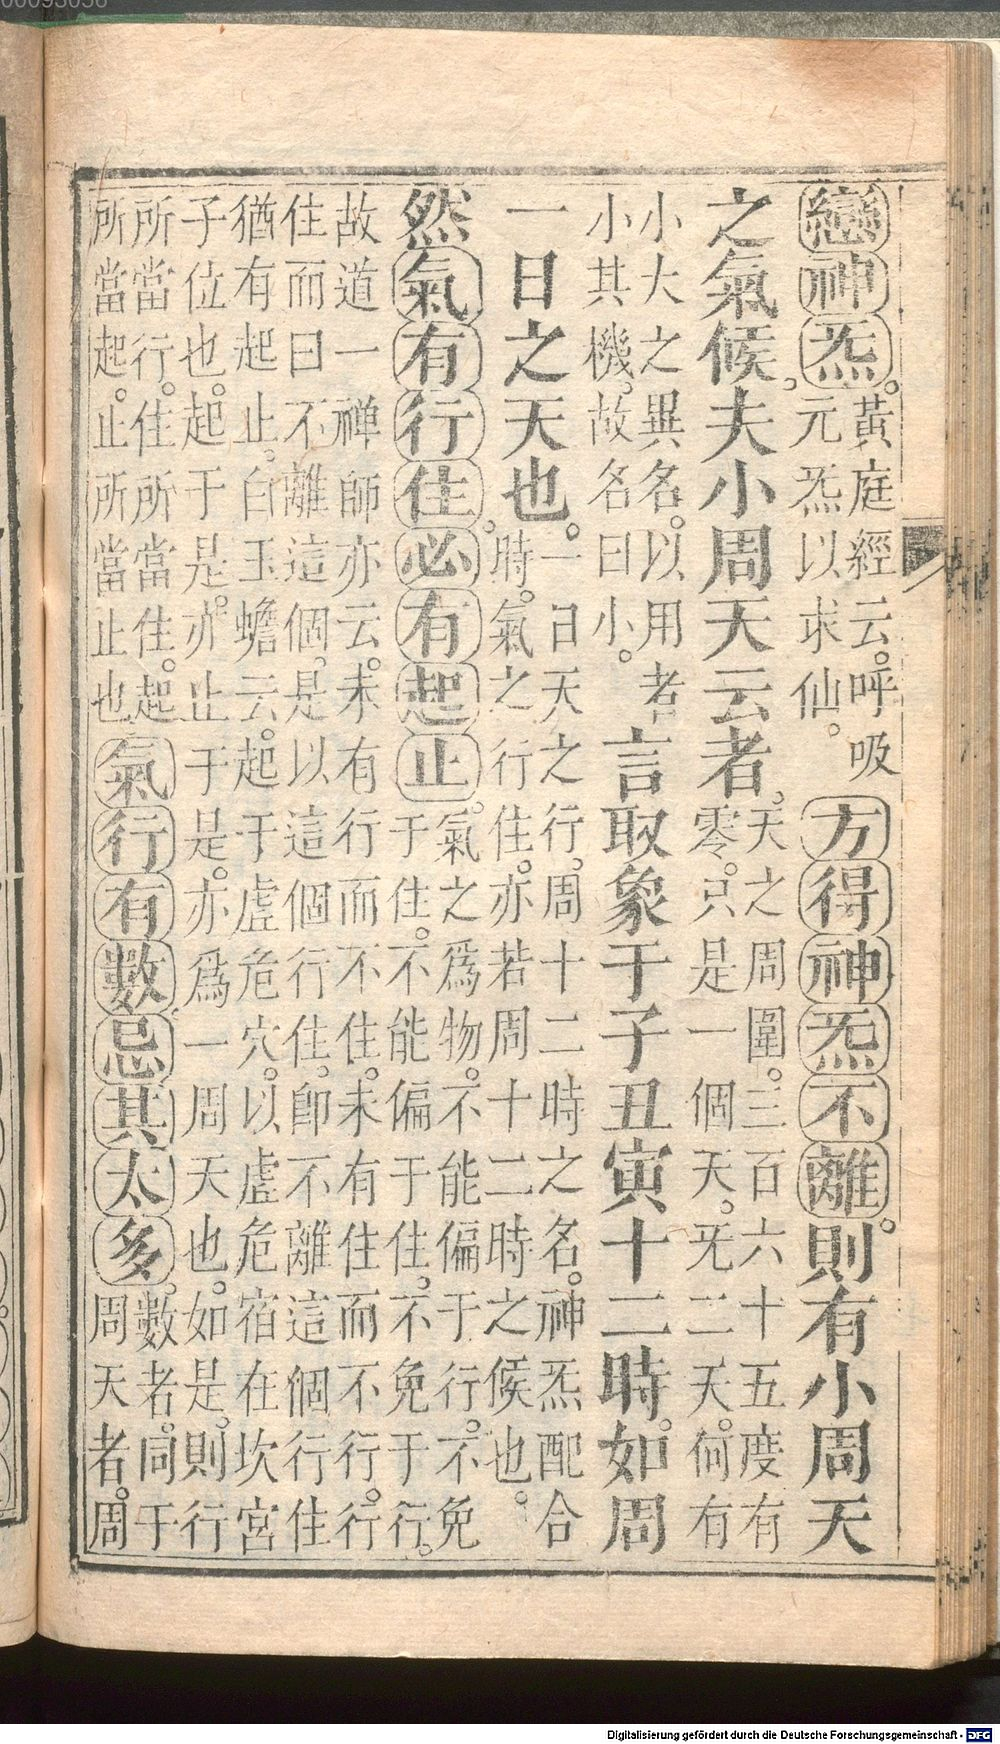 戀神炁。黃庭經云。呼吸
元炁以求仙。
方得神炁不離。則有小周天
之氣候。夫小周天云者。天之周圍。三百六十五度有
零。只是一個天。旡二天。何有
小大之異名。以用者
小其機。故名曰小。
言取象于子丑寅十二時。如周
一日之天也。一日天之行。周十二時之名。神炁配合
時。氣之行住。亦若周十二時之候也。
然氣有行住。必有起止。氣之爲物。不能偏于行。不免
于住。不能偏于住。不免于行。
故道一禪師亦云。未有行而不住。未有住而不行。行
住而曰不離這個。是以這個行住。卽不離這個行住
猶有起止。白玉蟾云。起于虛危穴。以虛危宿在坎宮
子位也。起于是。亦止于是。亦爲一周天也。如是。則行
所當行。住所當住。起
所當起。止所當止也
氣行有數忌其太多。數者。同于
周天者。周
Digitalisierung gefördert durch die Deutsche Forschungsgemeinschaft - DFG